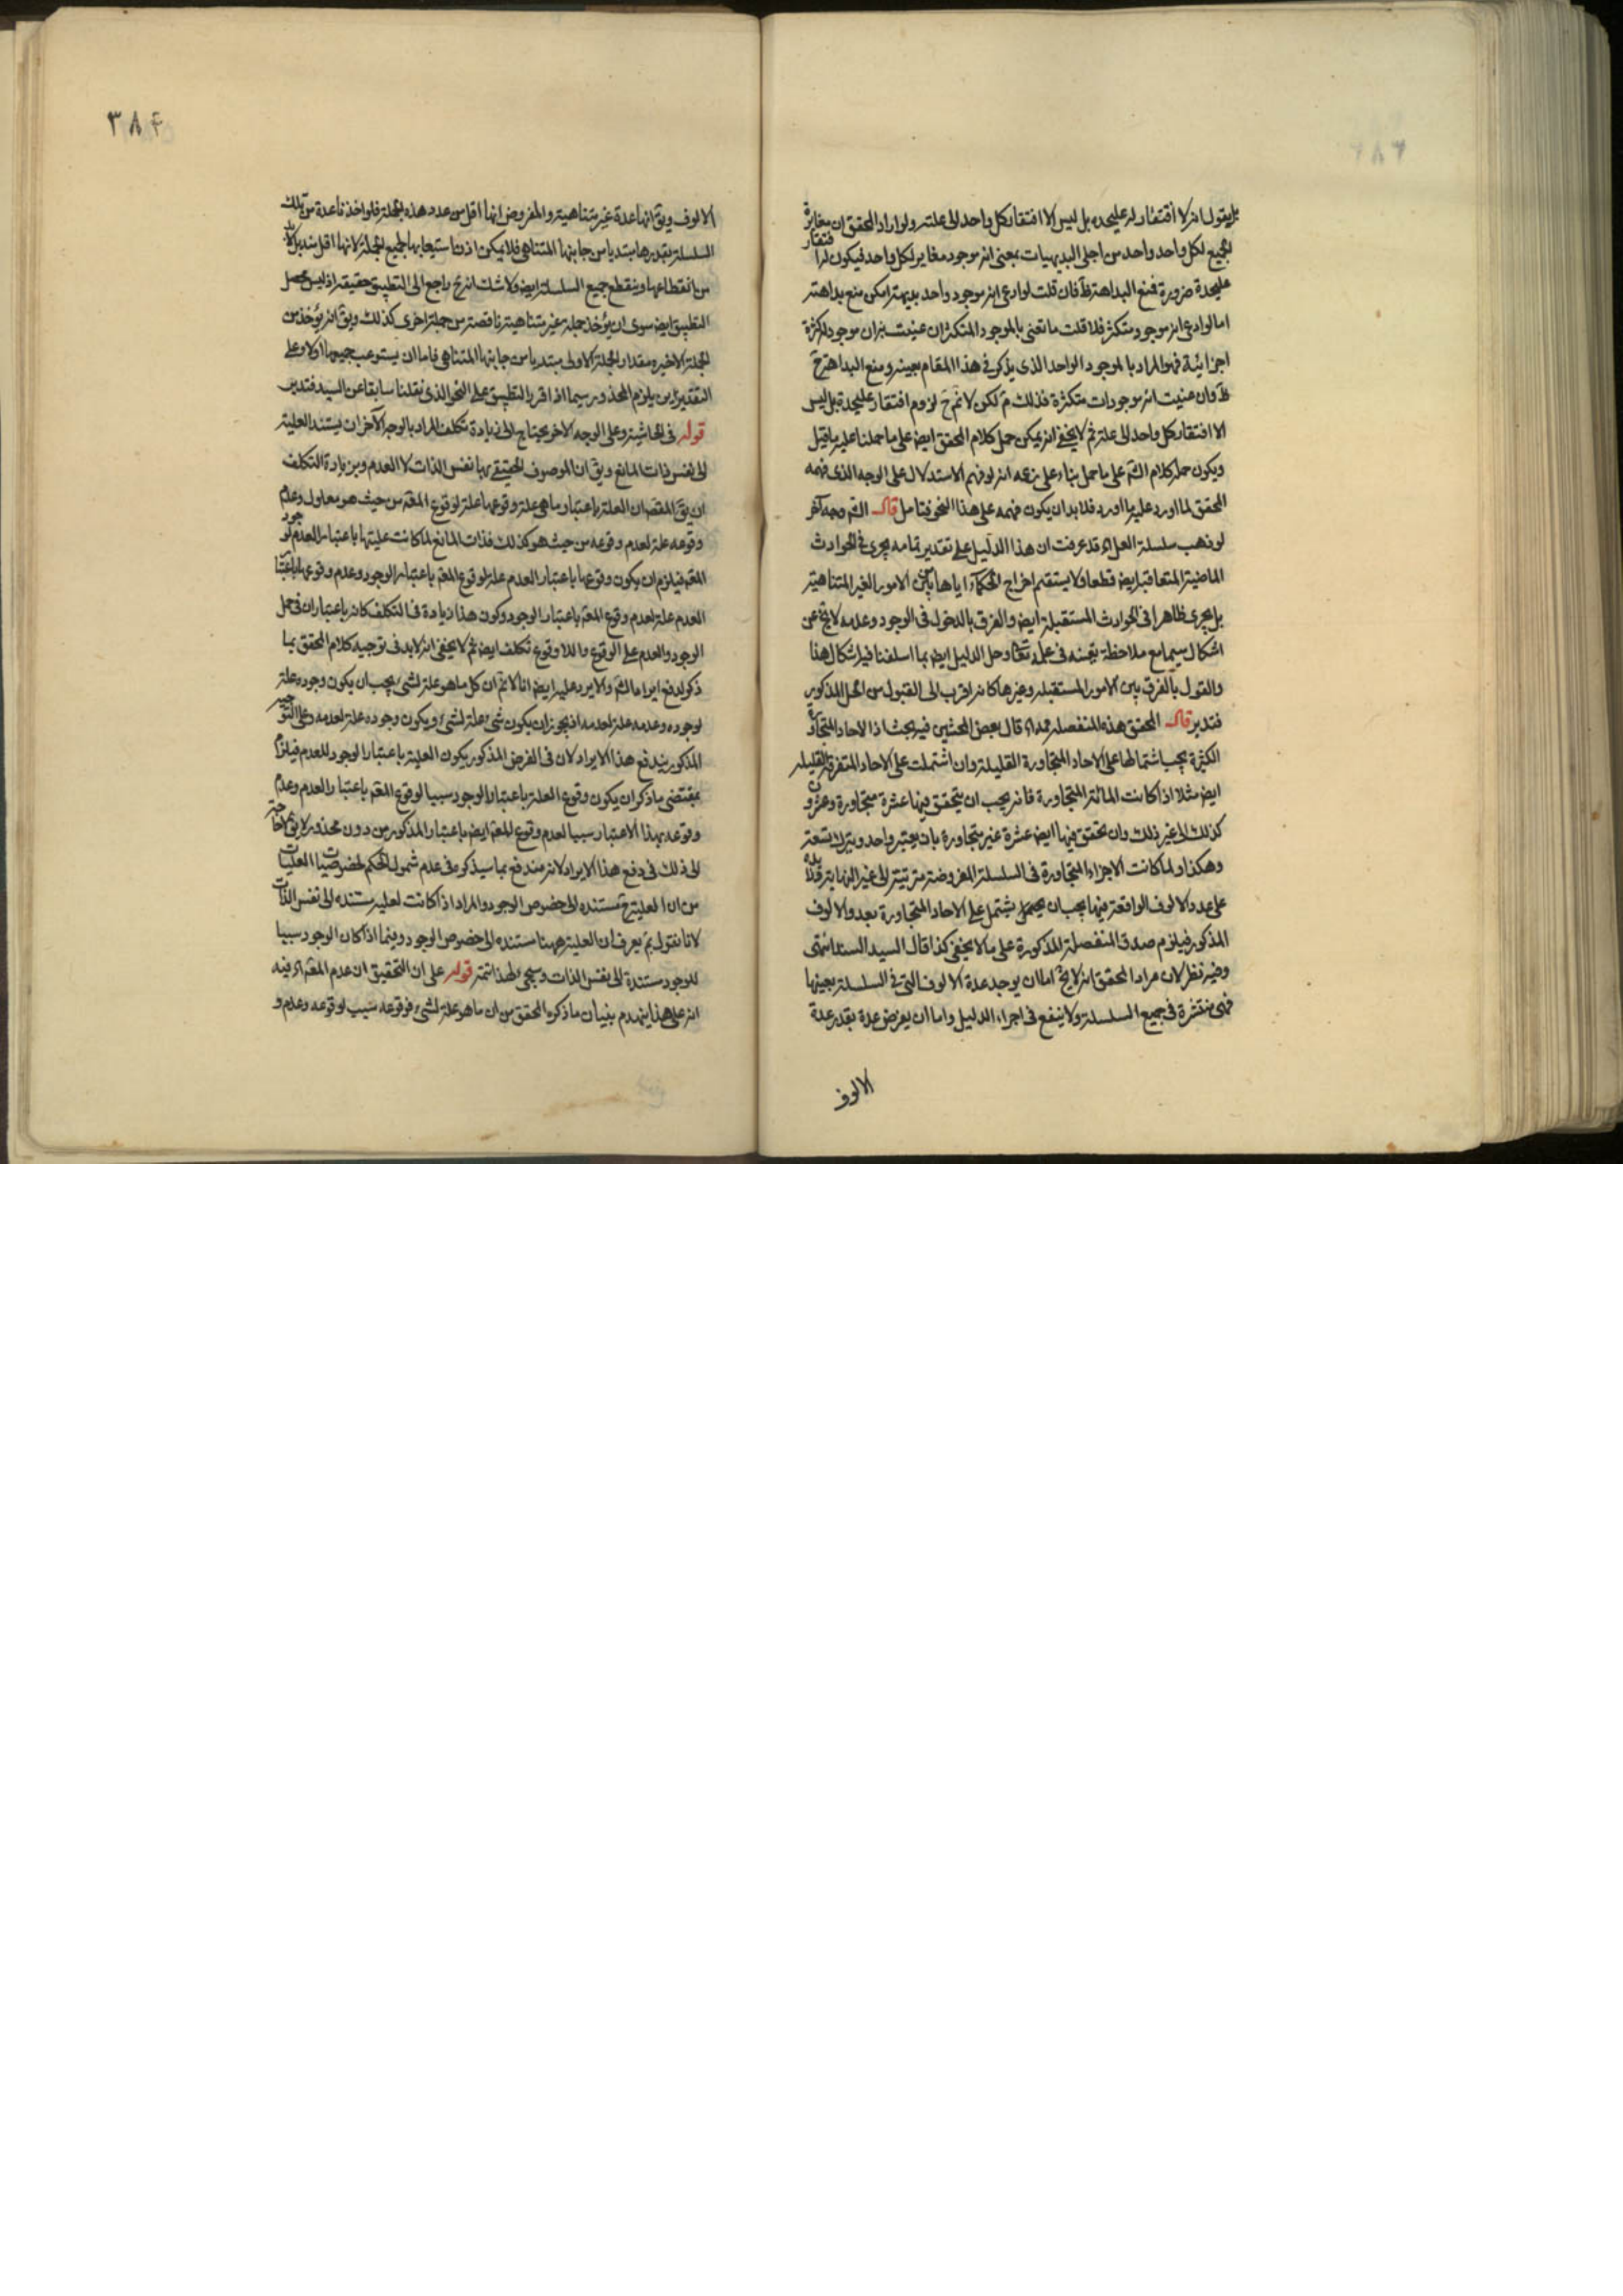 بل يقول انه لا افتقار له عليحده بل ليس الا افتقار كل واحد الى علته ولو اراد المحقق ان مغايرة
الجميع لكل واحد واحد من اجلى البديهيات بمعنى انه موجود مغاير لكل واحد فيكون له افتقار
عليحدة ضرورة فمنع البداهة ظ فان قلت لو ادعى انه موجود واحد بديهة امكن منع بداهته
اما لو ادعى انه موجود متكثر فلا قلت ما تعنى بالموجود المتكثر ان عنيت به ان موجود له كثرة
اجزائية فهو المراد بالموجود الواحد الذى يذكر فى هذا المقام بعينه ومنع البداهة ح
ظ وان عنيت انه موجودات متكثرة فذلك م لكن لا نم ح لزوم افتقار عليحدة بل ليس
الا افتقار كل واحد الى علة ثم لا يخفى انه يمكن حمل كلام المحقق ايض على ما حملنا عليه ما قيل
ويكون حمله كلام الش على ما حمل بناء على زعمه انه لو فهم الاستدلال على الوجه الذى فهمه
المحقق لما اورد عليه ما اورد فلا بد ان يكون فهمه على هذا النحو فتامل قال الش وجه آخر
لو ذهب سلسلة العلل اه قد عرفت ان هذا الدليل على تقدير تمامه يجرى فى الحوادث
الماضية المتعاقبة ايض قطعا فلا يستقيم اخراج الحكماء اياها بل فى الامور الغير المتناهية
بل يجرى ظاهرا فى الحوادث المستقبلة ايض والفرق بالدخول فى الوجود وعدمه لا يخ عن
اشكال سيما مع ملاحظة تعينه فى علمه تعالى وحل الدليل ايض بما اسلفنا فيه اشكال هنا
والقول بالفرق بين الامور المستقبلة وغيرها كانه اقرب الى القبول من الحل المذكور
فتدبر قال المحقق هذه المنفصلة ممه اه قال بعض المحشين فيه بحث اذ الاحاد المتجاورة
الكثيرة يجب اشتمالها على الاحاد المتجاورة القليلة وان اشتملت على الاحاد المتفرقة القليلة
ايض مثلا اذا كانت المائة المتجاورة فانه يجب ان يتحقق فيها عشرة متجاورة وعشرون
كذلك الى غير ذلك وان تحقق فيها ايض عشرة غير متجاورة بان يعتبر واحد ويترك تسعة
وهكذا ولما كانت الاجزاء المتجاورة فى السلسلة المفروضة مترتبة الى غير النهاية فلا بد
على عدد الالوف الواقعة فيها يجب ان يشتمل على الاحاد المتجاورة بعدد الالوف
المذكور فيلزم صدق المنفصلة المذكورة على ما لا يخفى كذا قال السيد السند انتهى
وفيه نظر لان مراد المحقق انه لا يخ اما ان يوجد عدة الالوف التى فى السلسلة بعينها
فهى منتشرة فى جميع السلسلة ولا ينفع فى اجراء الدليل واما ان يعرض عدة بقدر عدة
الالوف
٣٨٤
الالوف ويق انها عدة غير متناهية والمفروض انها اقل من عدد هذه الجملة فلو اخذنا عدة من تلك
السلسلة بقدرها مبتديا من جانبها المتناهى فلا يمكن اذن استيعابها لجميع الجملة لانها اقل منه بل لا بد
من انقطاعها وينقطع جميع السلسلة ايض ولا شك انه ح راجع الى التطبيق حقيقة اذ ليس محصل
التطبيق ايض سوى ان يؤخذ جملة غير متناهية ناقصة من جملة اخرى كذلك ويق انه يؤخذ من
الجملة الاخيرة مقدار الجملة الاولى مبتديا من جانبها المتناهى فاما ان يستوعب جميعها اولا وعلى
التقديرين يلزم المحذور سيما اذا قرر التطبيق على النحو الذى نقلنا سابقا عن السيد فتدبر
قوله فى الحاشية وعلى الوجه الاخر يحتاج الى زيادة تكلف المراد بالوجه الآخر ان يستند العلية
الى نفس ذات المانع ويق ان الموصوف الحقيقى بها نفس الذات لا العدم وبزيادة التكلف
ان يق المقص ان العلة باعتبار ما هى علة وقوعها علة لوقوع المعلول من حيث هو معلول وعدم
وقوعه علة لعدم وقوعه من حيث هو كذلك فذات المانع لما كانت عليتها باعتبار العدم لوجود
المعلول فيلزم ان يكون وقوعها باعتبار العدم علة لوقوع المعلول باعتبار الوجود وعدم وقوعها باعتبار
العدم علة لعدم وقوع المعلول باعتبار الوجود وكون هذا زيادة فى التكلف كانه باعتبار ان فى حمل
الوجود والعدم على الوقوع واللاوقوع تكلف ايض ثم لا يخفى انه لا بد فى توجيه كلام المحقق بما
ذكر لدفع ايراد الش والا يرد عليه ايض انا لا نم ان كل ما هو علة لشىء يجب ان يكون وجوده علة
لوجوده وعدمه علة لعدمه اذ يجوز ان يكون شىء علة لشىء ويكون وجوده علة لعدمه وعلى التوجيه
المذكور يندفع هذا الايراد لان فى الفرض المذكور يكون العلية باعتبار الوجود للعدم فيلزم
بمقتضى ما ذكر ان يكون وقوع العلة باعتبار الوجود سببا لوقوع المعلول باعتبار العدم وعدم
وقوعه بهذا الاعتبار سببا لعدم وقوع المعلول ايض باعتبار المذكور من دون محذور لا يق لا حاجة
الى ذلك فى دفع هذا الايراد لانه مندفع بما سيذكره فى عدم شمول الحكم لخصوصيات العليات
من ان العلية ح تستند الى خصوص الوجود والمراد اذا كانت العلية مستندة الى نفس الذات
لانا نقول بم يعرف ان العلية ههنا مستندة الى خصوص الوجود وفيما اذا كان الوجود سببا
للوجود مستندة الى نفس الذات وسيجىء لهذا تتمة قوله على ان التحقيق ان عدم المعلول اه فيه
انه على هذا ينهدم بنيان ما ذكره المحقق من ان ما هو علة لشىء فوقوعه سبب لوقوعه وعدم و